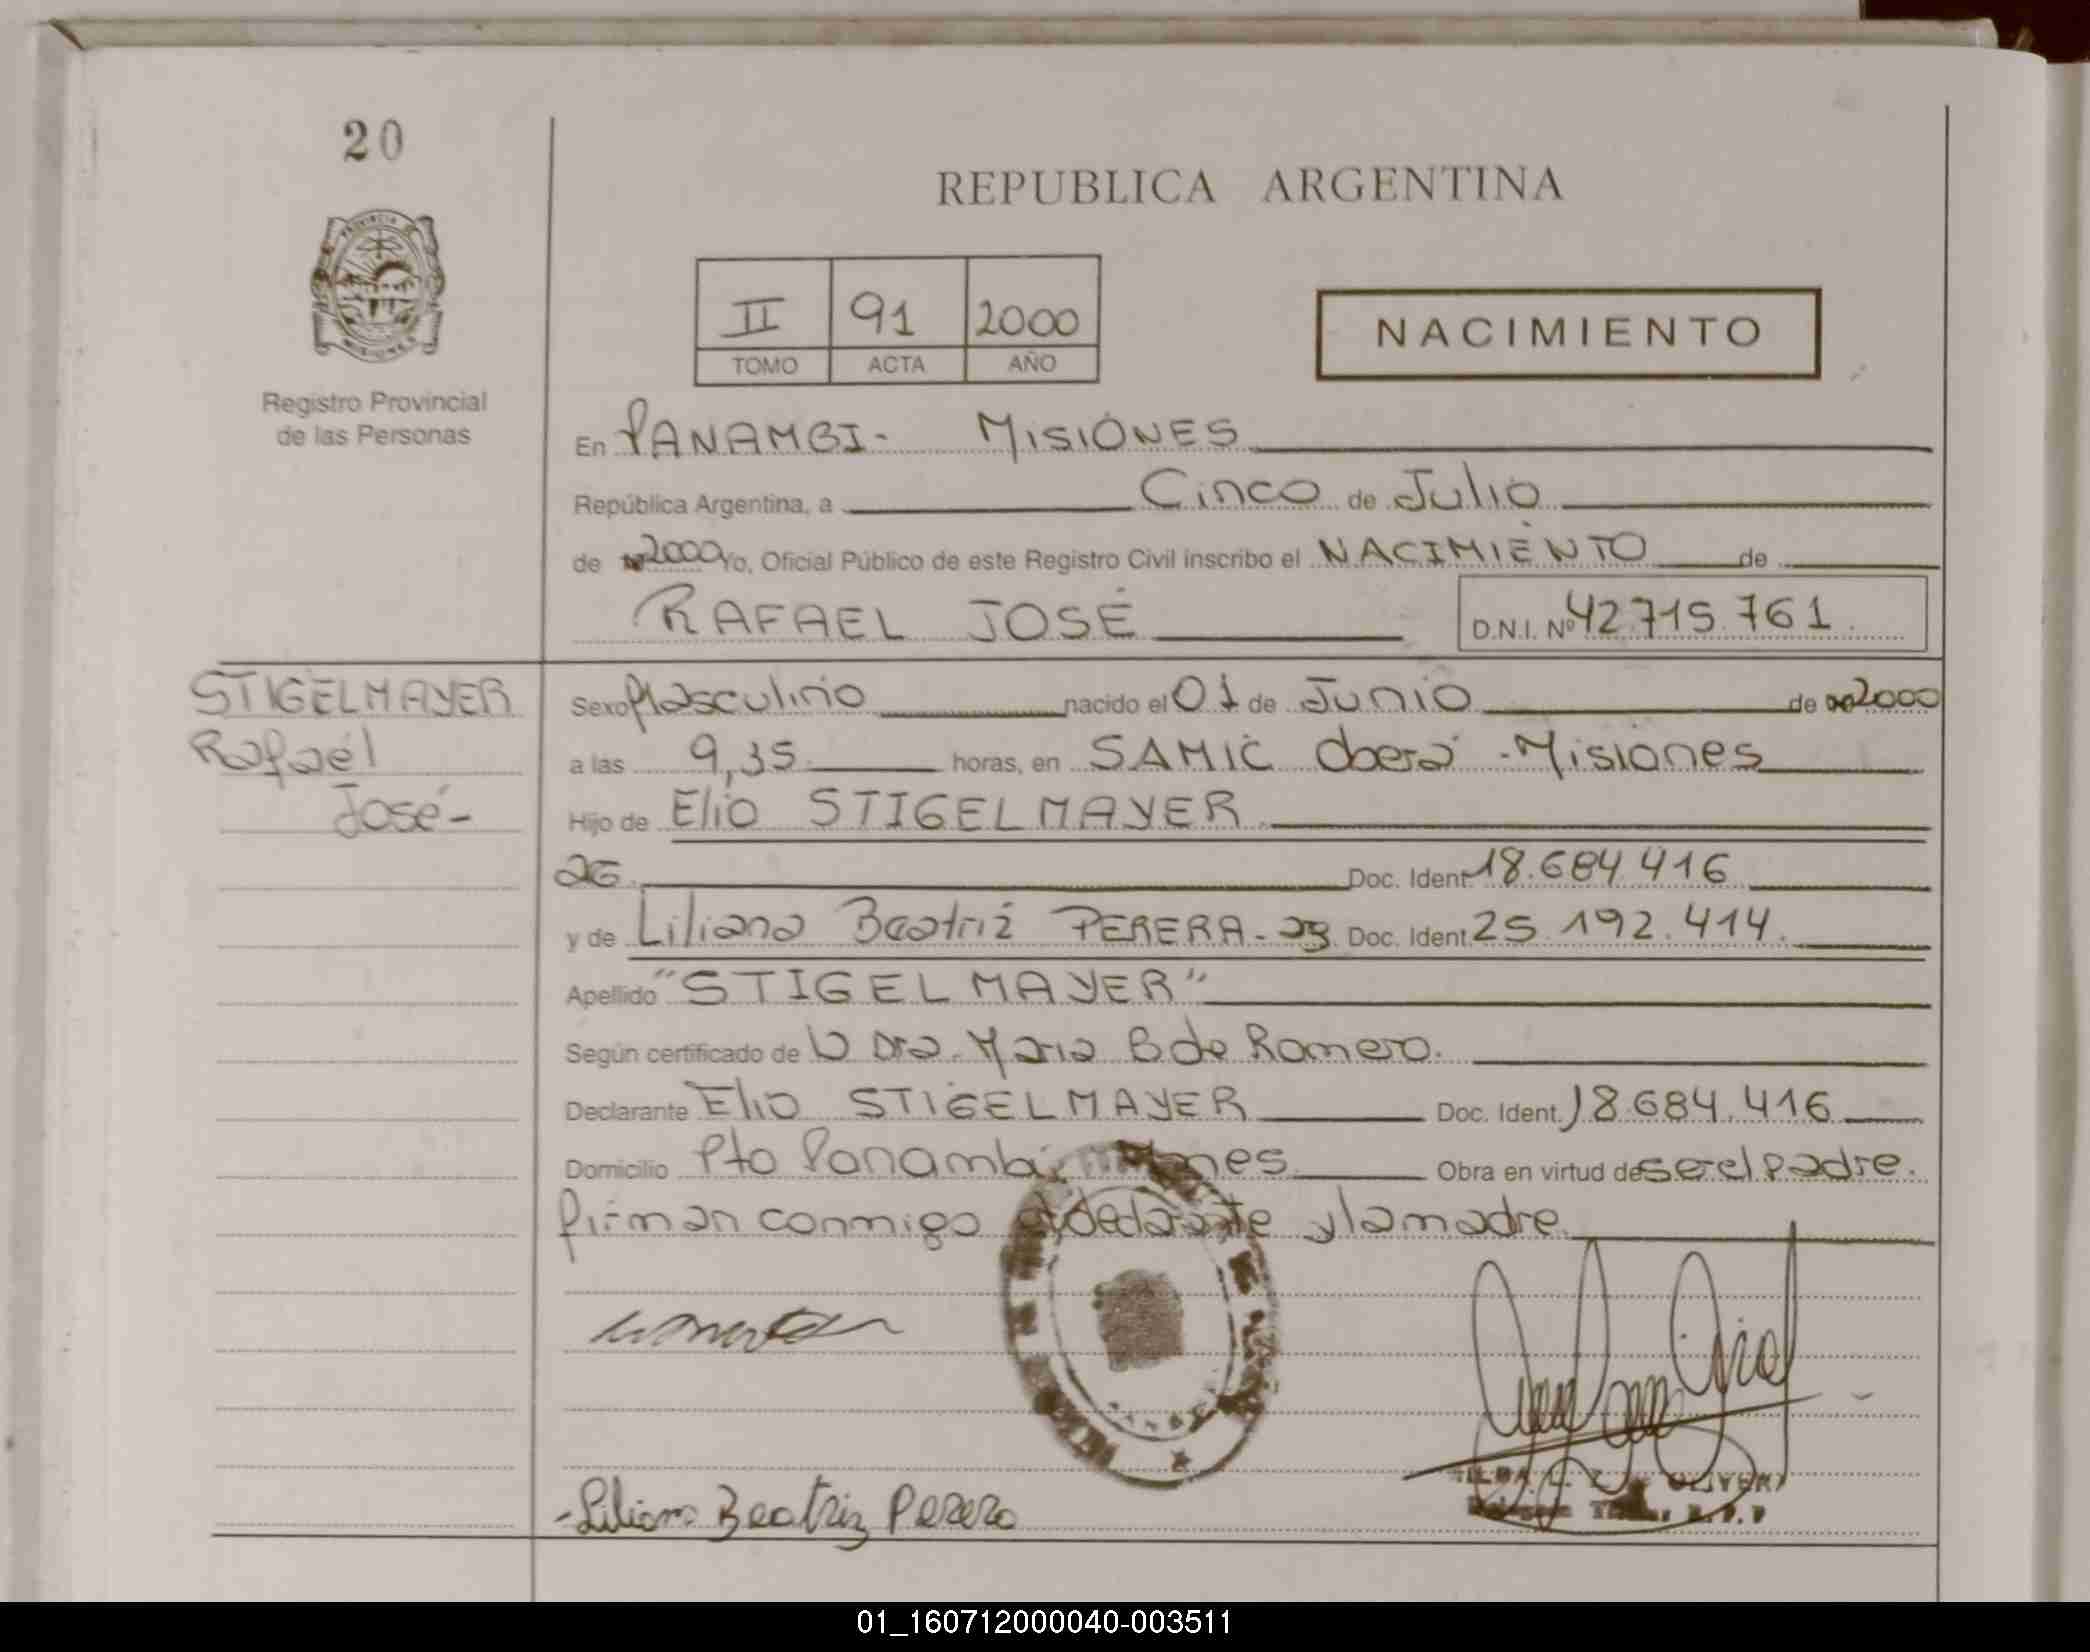 20
REPUBLICA ARGENTINA
PROVINCIA DE
MISIONES
Registro Provincial
de las Personas
II 91 2000
TOMO ACTA AÑO
NACIMIENTO
En PANAMBI - MISIONES
República Argentina, a Cinco de Julio
de 2000 Yo, Oficial Público de este Registro Civil inscribo el NACIMIENTO de
RAFAEL JOSÉ D.N.I. Nº 42.715.761
STIGELMAYER
Rafael
José-
Sexo Masculino nacido el 01 de Junio de 2000
a las 9,35 horas, en SAMIC Oberá - Misiones
Hijo de Elio STIGELMAYER
26 Doc. Ident 18.684.416
y de Liliana Beatriz PERERA - 23 Doc. Ident. 25.192.414.
Apellido "STIGELMAYER"
Según certificado de la Dra. Maria B de Romero.
Declarante Elio STIGELMAYER Doc. Ident. 18.684.416
Domicilio Pto Panambi, Misiones Obra en virtud de ser el padre.
firman conmigo el declarante y la madre.
Liliana Beatriz Perera
01_160712000040-003511